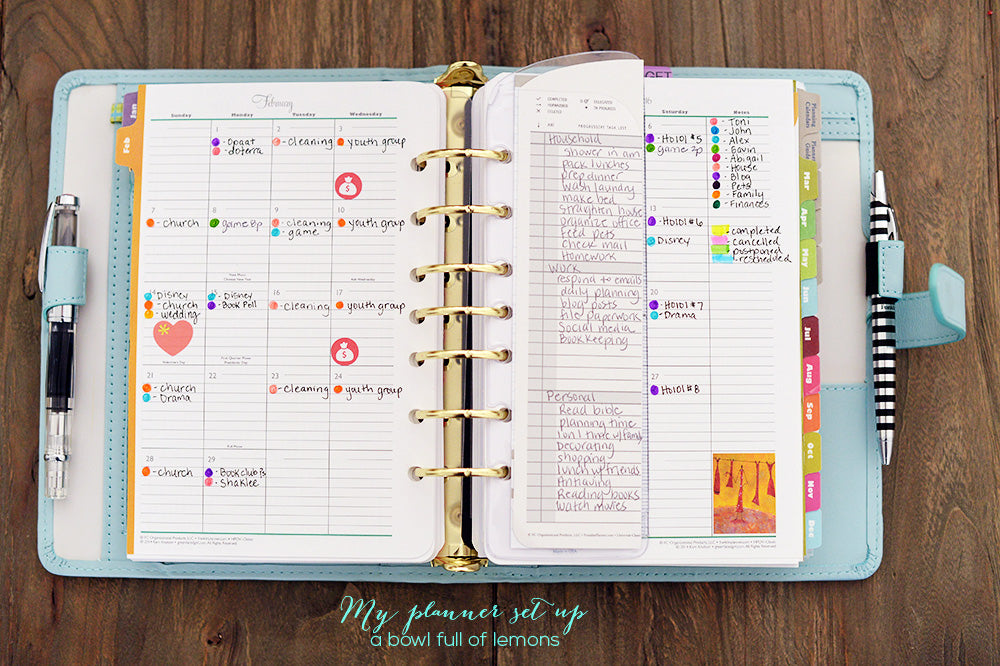 February
Sunday Monday Tuesday Wednesday
1 2 3
- Opaat - cleaning youth group
- doterra
7 8 9 10
- church game 8p - cleaning youth group
- game
New Moon
Chinese New Year
Ash Wednesday
14 15 16 17
- Disney - Disney - cleaning youth group
- church - Book Pell
- wedding
Valentine's Day
First Quarter Moon
Presidents' Day
21 22 23 24
- church - cleaning youth group
- Drama
Full Moon
28 29
- church - Book club 8p
- Shaklee
Jan
Feb
COMPLETED
FORWARDED
DELETED
DELEGATED
IN PROGRESS
ABC
PROGRESSIVE TASK LIST
Household
shower in am
pack lunches
prep dinner
wash laundry
make bed
straighten house
organize office
feed pets
check mail
Homework
Work
respond to emails
daily planning
blog posts
file paperwork
Social media
Bookkeeping
Personal
Read bible
planning time
1 on 1 time w/
Decorating
shopping
lunch w/friends
Antiquing
Reading books
watch movies
Saturday Notes
6
- Ho101 #5
game 2p
13
- Ho101 #6
Disney
20
- Ho101 #7
- Drama
27
- Ho101 #8
- Toni
- John
- Alex
- Gavin
- Abigail
- House
- Blog
- Pets
- Family
- Finances
- completed
- cancelled
- postponed
- rescheduled
Planning Calendars
Planner Guide
Mar
Apr
May
Jun
Jul
Aug
Sep
Oct
Nov
Dec
Made in USA
My planner set up
a bowl full of lemons